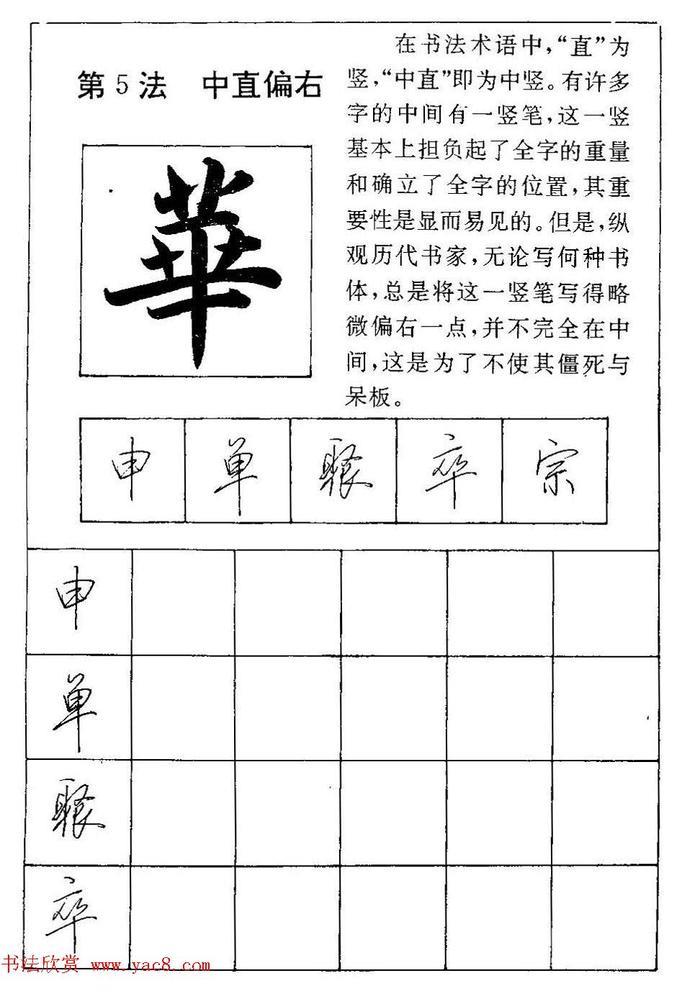 第5法 中直偏右
在书法术语中，“直”为
竖，“中直”即为中竖。有许多
字的中间有一竖笔，这一竖
基本上担负起了全字的重量
和确立了全字的位置，其重
要性是显而易见的。但是，纵
观历代书家，无论写何种书
体，总是将这一竖笔写得略
微偏右一点，并不完全在中
间，这是为了不使其僵死与
呆板。
華
申 单 聚 卒 宗
申
单
聚
卒
书法欣赏 www.yac8.com